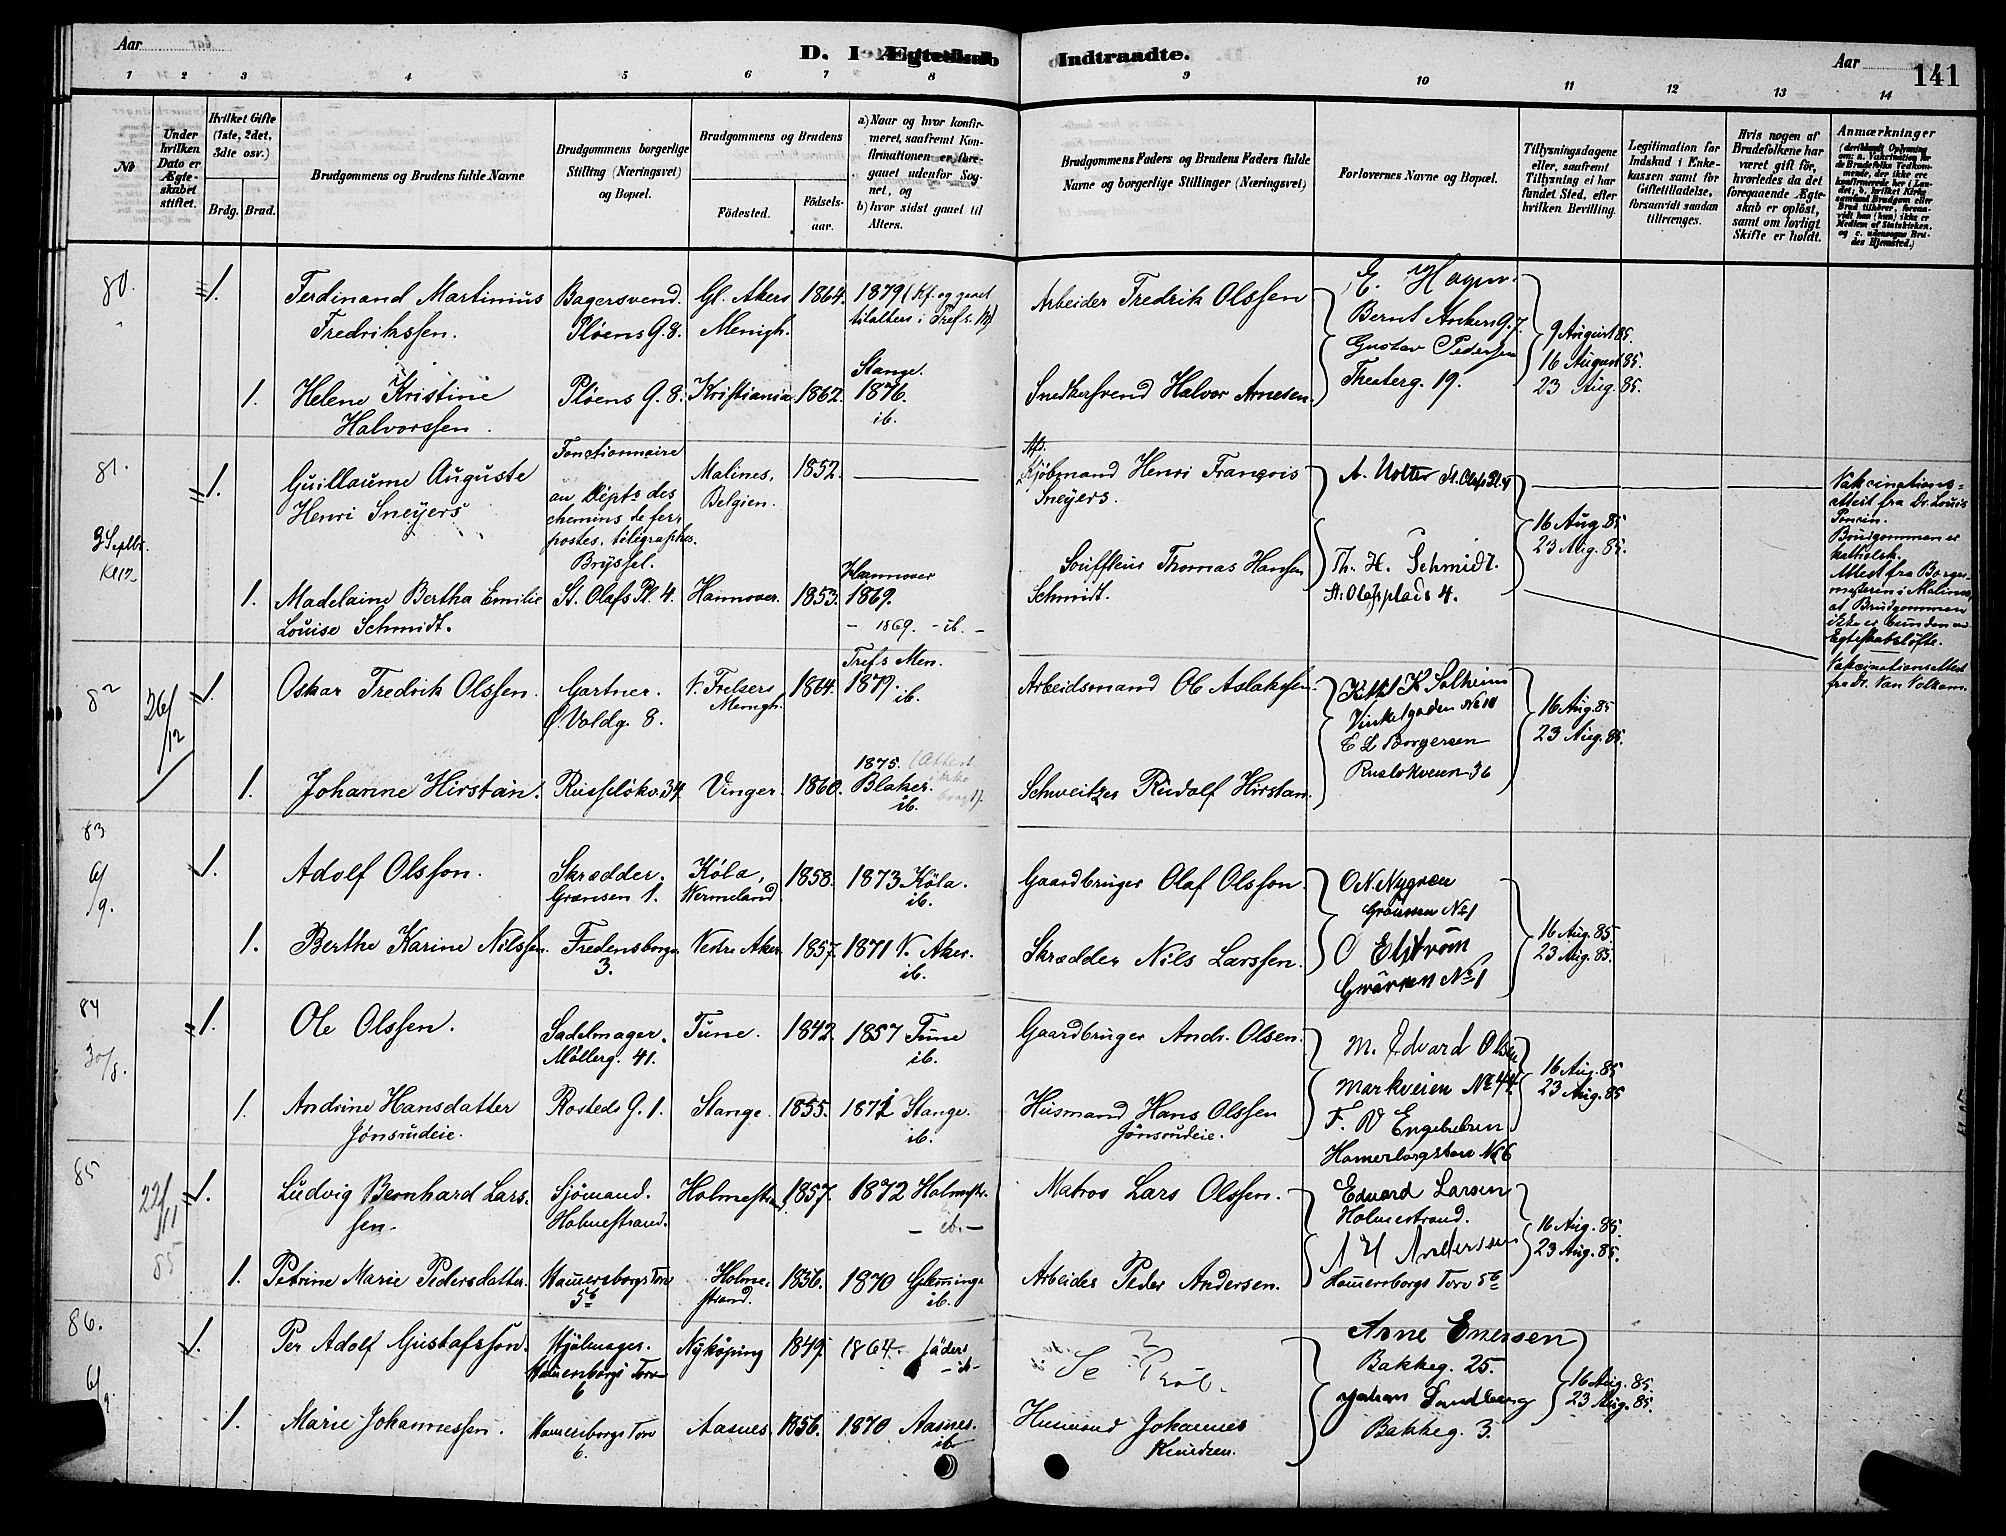 Aar
D. I Ægteskab Indtraadte.
Aar
141
1 2 3 4 5 6 7 8 9 10 11 12 13 14
No
Under hvilken Dato er Ægteskabet stiftet.
Hvilket Gifte (1ste, 2det, 3die osv.)
Brdg. Brud.
Brudgommens og Brudens fulde Navne
Brudgommens borgerlige Stilling (Næringsvei) og Bopæl.
Brudgommens og Brudens
Fødested.
Fødselsaar.
a) Naar og hvor konfirmeret, saafremt Konfirmationen er foregaaet udenfor Sognet, og
b) hvor sidst gaaet til Alters.
Brudgommens Faders og Brudens Faders fulde Navne og borgerlige Stillinger (Næringsvei)
Forlovernes Navne og Bopæl.
Tillysningsdagene eller, saafremt Tillysning ei har fundet Sted, efter hvilken Bevilling.
Legitimation for Indskud i Enkekassen samt for Giftetilladelse, forsaavidt saadan tiltrænges.
Hvis nogen af Brudefolkene har været gift før, hvorledes da det foregaaende Ægteskab er opløst, samt om lovligt Skifte er holdt.
Anmærkninger
80.
1. Ferdinand Martinius Fredrikssen.
Bagersvend. Pløens G. 8.
Gl. Akers Menigh.
1864.
1879 (Kf. og gaaet tilalters i Trefs. M)
Arbeider Fredrik Olssen
E. Hagen.
Bernt Ankers G. 7.
Gustav Pedersen
Theaterg. 19.
9 August 85.
16 August 85.
23 Aug. 85.
1. Helene Kristine Halvorssen.
Pløens G. 8.
Kristiania
1862.
Stange. 1876. ib.
Snedkersvend Halvor Arnesen.
81.
3 Septbr. Kl 12
1. Guillaume Auguste Henri Sneyers
Fonctionnaire au Dépts des chemins de fer, postes, télégraphes. Bryssel.
Malines, Belgien.
1852.
Kjøbmand Henri François Sneyers.
St. Olafs Pl. 4
16 Aug. 85
23 Aug. 85.
Vakcinationsattest fra Dr. Louis
Brudgommen er katholsk.
Attest fra Borgemesteren i Malines, at Brudgommen ikke er bunden ved Egteskabsløfte.
Vakcinationsattest fra Dr. Van Volkom.
1. Madelaine Bertha Emilie Louise Schmidt.
St. Olafs Pl. 4.
Hannover.
1853.
Hannover 1869.
- 1869. - ib. -
Souffleur Thomas Hansen Schmidt.
Th. H. Schmidt.
St. Olafsplads 4.
82
26/12
1. Oskar Fredrik Olssen.
Gartner. Ø. Voldg. 8.
V. Frelsers Menigh.
1864.
Trefs Men. 1879. ib.
Arbeidsmand Ole Aslaksen.
Kittel K Solheim
Vinkelgaden No 1
E L Borgersen
Rusløkveien 36
16 Aug. 85
23 Aug. 85.
1. Johanne Hirstan.
Russeløkv. 34.
Vinger.
1860.
1875. Blaker. ib.
Schweitzer Rudolf Hirstan.
83
6/9.
1. Adolf Olsson.
Skrædder. Grænsen 1.
Köla, Wermeland
1858.
1873 Köla. ib.
Gaardbruger Olaf Olsson.
O N Nygren
Grænsen No 1
O Elgström
No 1
16 Aug. 85
23 Aug. 85.
1. Berthe Karine Nilssen.
Fredensborgv. 3.
Vestre Aker
1857.
1871 V. Aker. ib.
Skrædder Nils Larssen.
84
30/8.
1. Ole Olssen.
Sadelmager. Møllerg. 41.
Tune.
1842.
1857 Tune ib.
Gaardbruger Andr. Olsen.
M. Edvard Olsen
Markveien No 44
F. W Engebretsen
No 6
16 Aug. 85
23 Aug. 85
1. Andrine Hansdatter Jønsrudeie.
Rosteds G. 1.
Stange.
1855.
1872 Stange. ib.
Husmand Hans Olssen Jønsrudeie.
85
22/11 85
1. Ludvig Bernhard Larssen.
Sjømand. Holmestrand.
Holmestr.
1857.
1872 Holmestr. - ib. -
Matros Lars Olssen.
Edvard Larsen
Holmestrand.
A H Anderssen
Hamersborgs Torv 5b
16 Aug. 85.
23 Aug. 85.
1. Petrine Marie Pedersdatter.
Hamersborgs Torv 5b
Holmestrand.
1856.
1870 Glemminge ib.
Arbeider Peder Andersen.
86.
6/9
1. Per Adolf Gustafsson.
Hjulmager. Hamersborgs Torv 6
Nyköping
1849.
1864. Jäders - ib -
Arne Enersen
Bakkeg. 25.
Johan Sandberg
Bakkeg. 3.
16 Aug. 85.
23 Aug. 85.
1. Marie Johannessen.
Hamersborgs Torv 6.
Aasnes.
1856.
1870 Aasnes. ib
Husmand Johannes Knudsen.